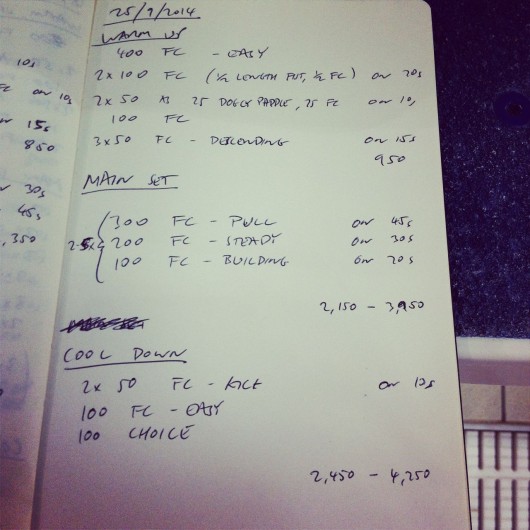 25/9/2014
WARM UP
400 FC - EASY
2x 100 FC (½ LENGTH FUT, ½ FC) on 20s
2x 50 AS 25 DOGGY PADDLE, 25 FC on 10s
100 FC
3x50 FC - DESCENDING on 15s
950
MAIN SET
300 FC - PULL on 45s
2-5x 200 FC - STEADY on 30s
100 FC - BUILDING on 20s
2,150 - 3,950
COOL DOWN
2x 50 FC - KICK on 10s
100 FC - EASY
100 CHOICE
2,450 - 4,250
10s
FC on 10s
on 15s
850
on 30s
45s
,350